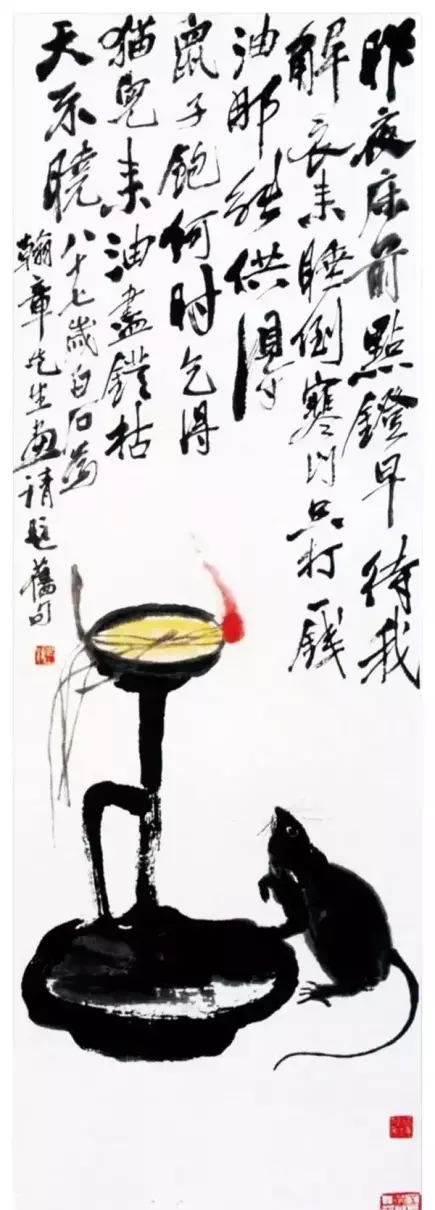 昨夜床前點鐙早待我
解衣来睡倒寒门只打一錢
油那能供得
鼠子飽何时乞得
猫兒来油盡鐙枯
天不曉 八十七歲白石為
翰章先生畫請題舊句